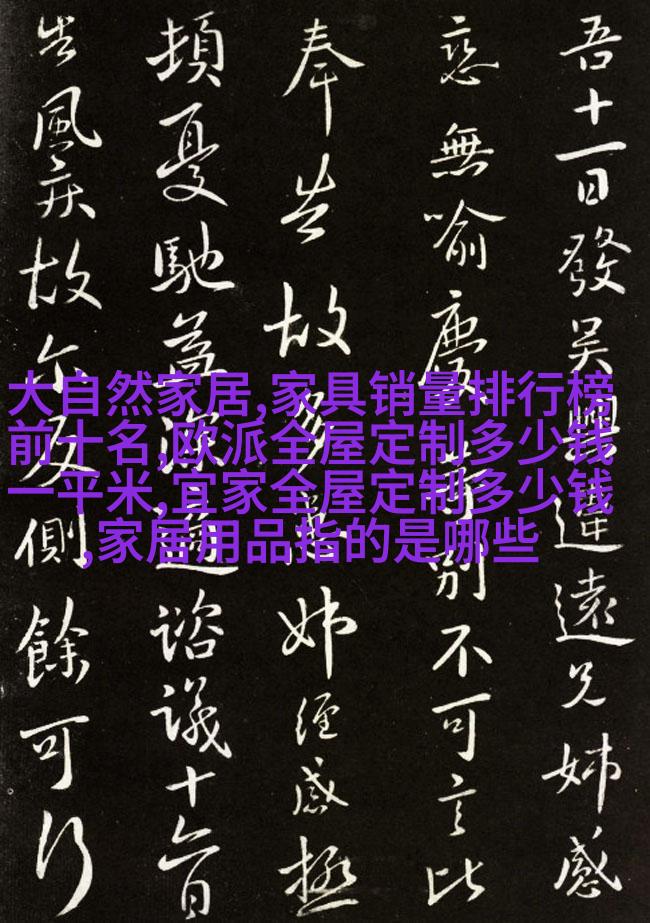 吾十一日發吴興違遠兄姊感
戀無喻慶等別不可言比
奉告故多患姊經感極
頓憂馳益深適諮議十六日
告風疾故尓反側餘可行
大自然家居,家具销量排行榜
前十名,欧派全屋定制多少钱
一平米,宜家全屋定制多少钱
,家居用品指的是哪些